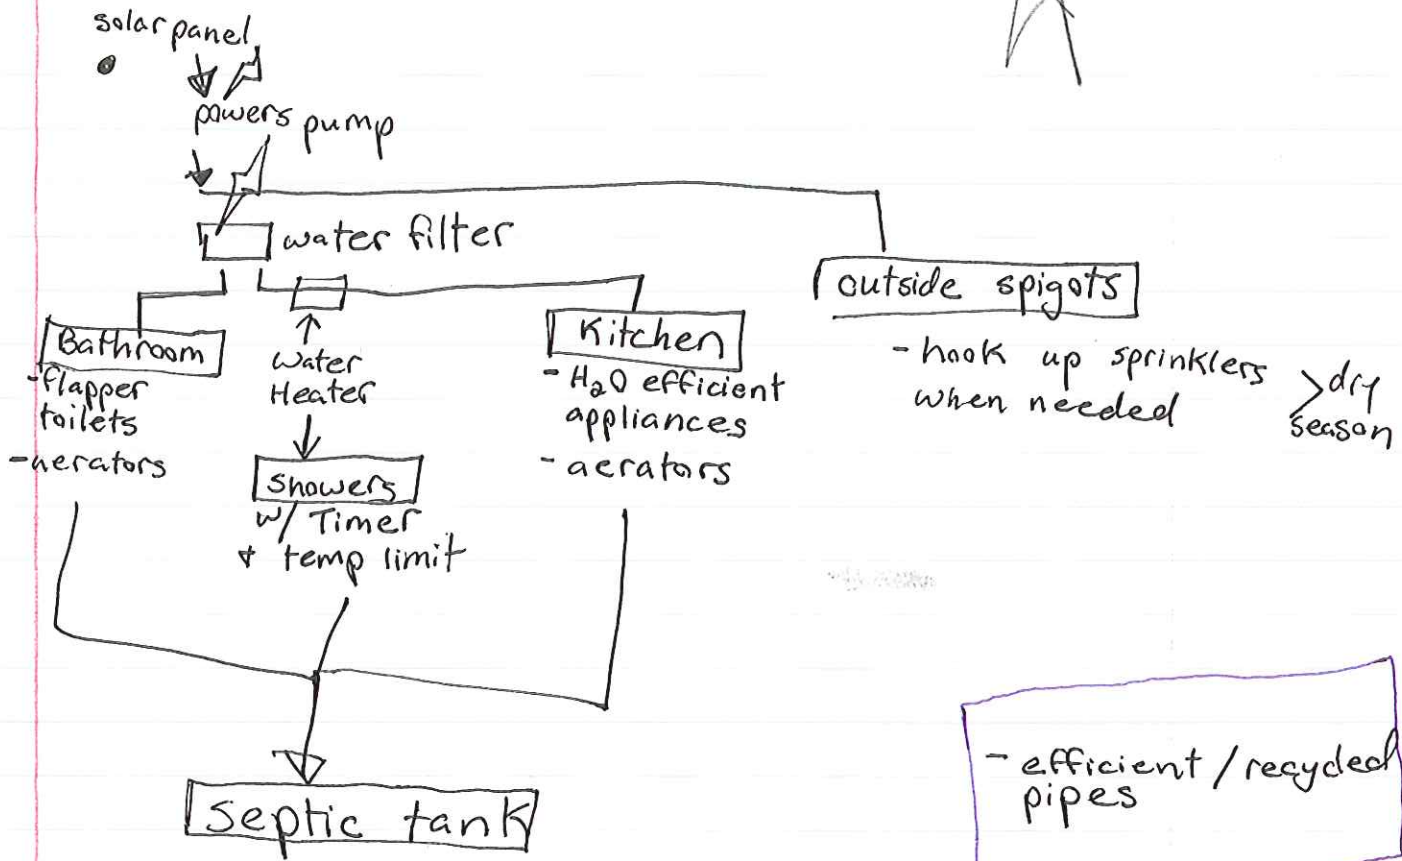 solar panel
powers pump
water filter
outside spigots
- hook up sprinklers
when needed
> dry
season
Bathroom
- flapper
toilets
- aerators
Water
Heater
Showers
w/ Timer
+ temp limit
Kitchen
- H₂O efficient
appliances
- aerators
Septic tank
- efficient / recycled
pipes